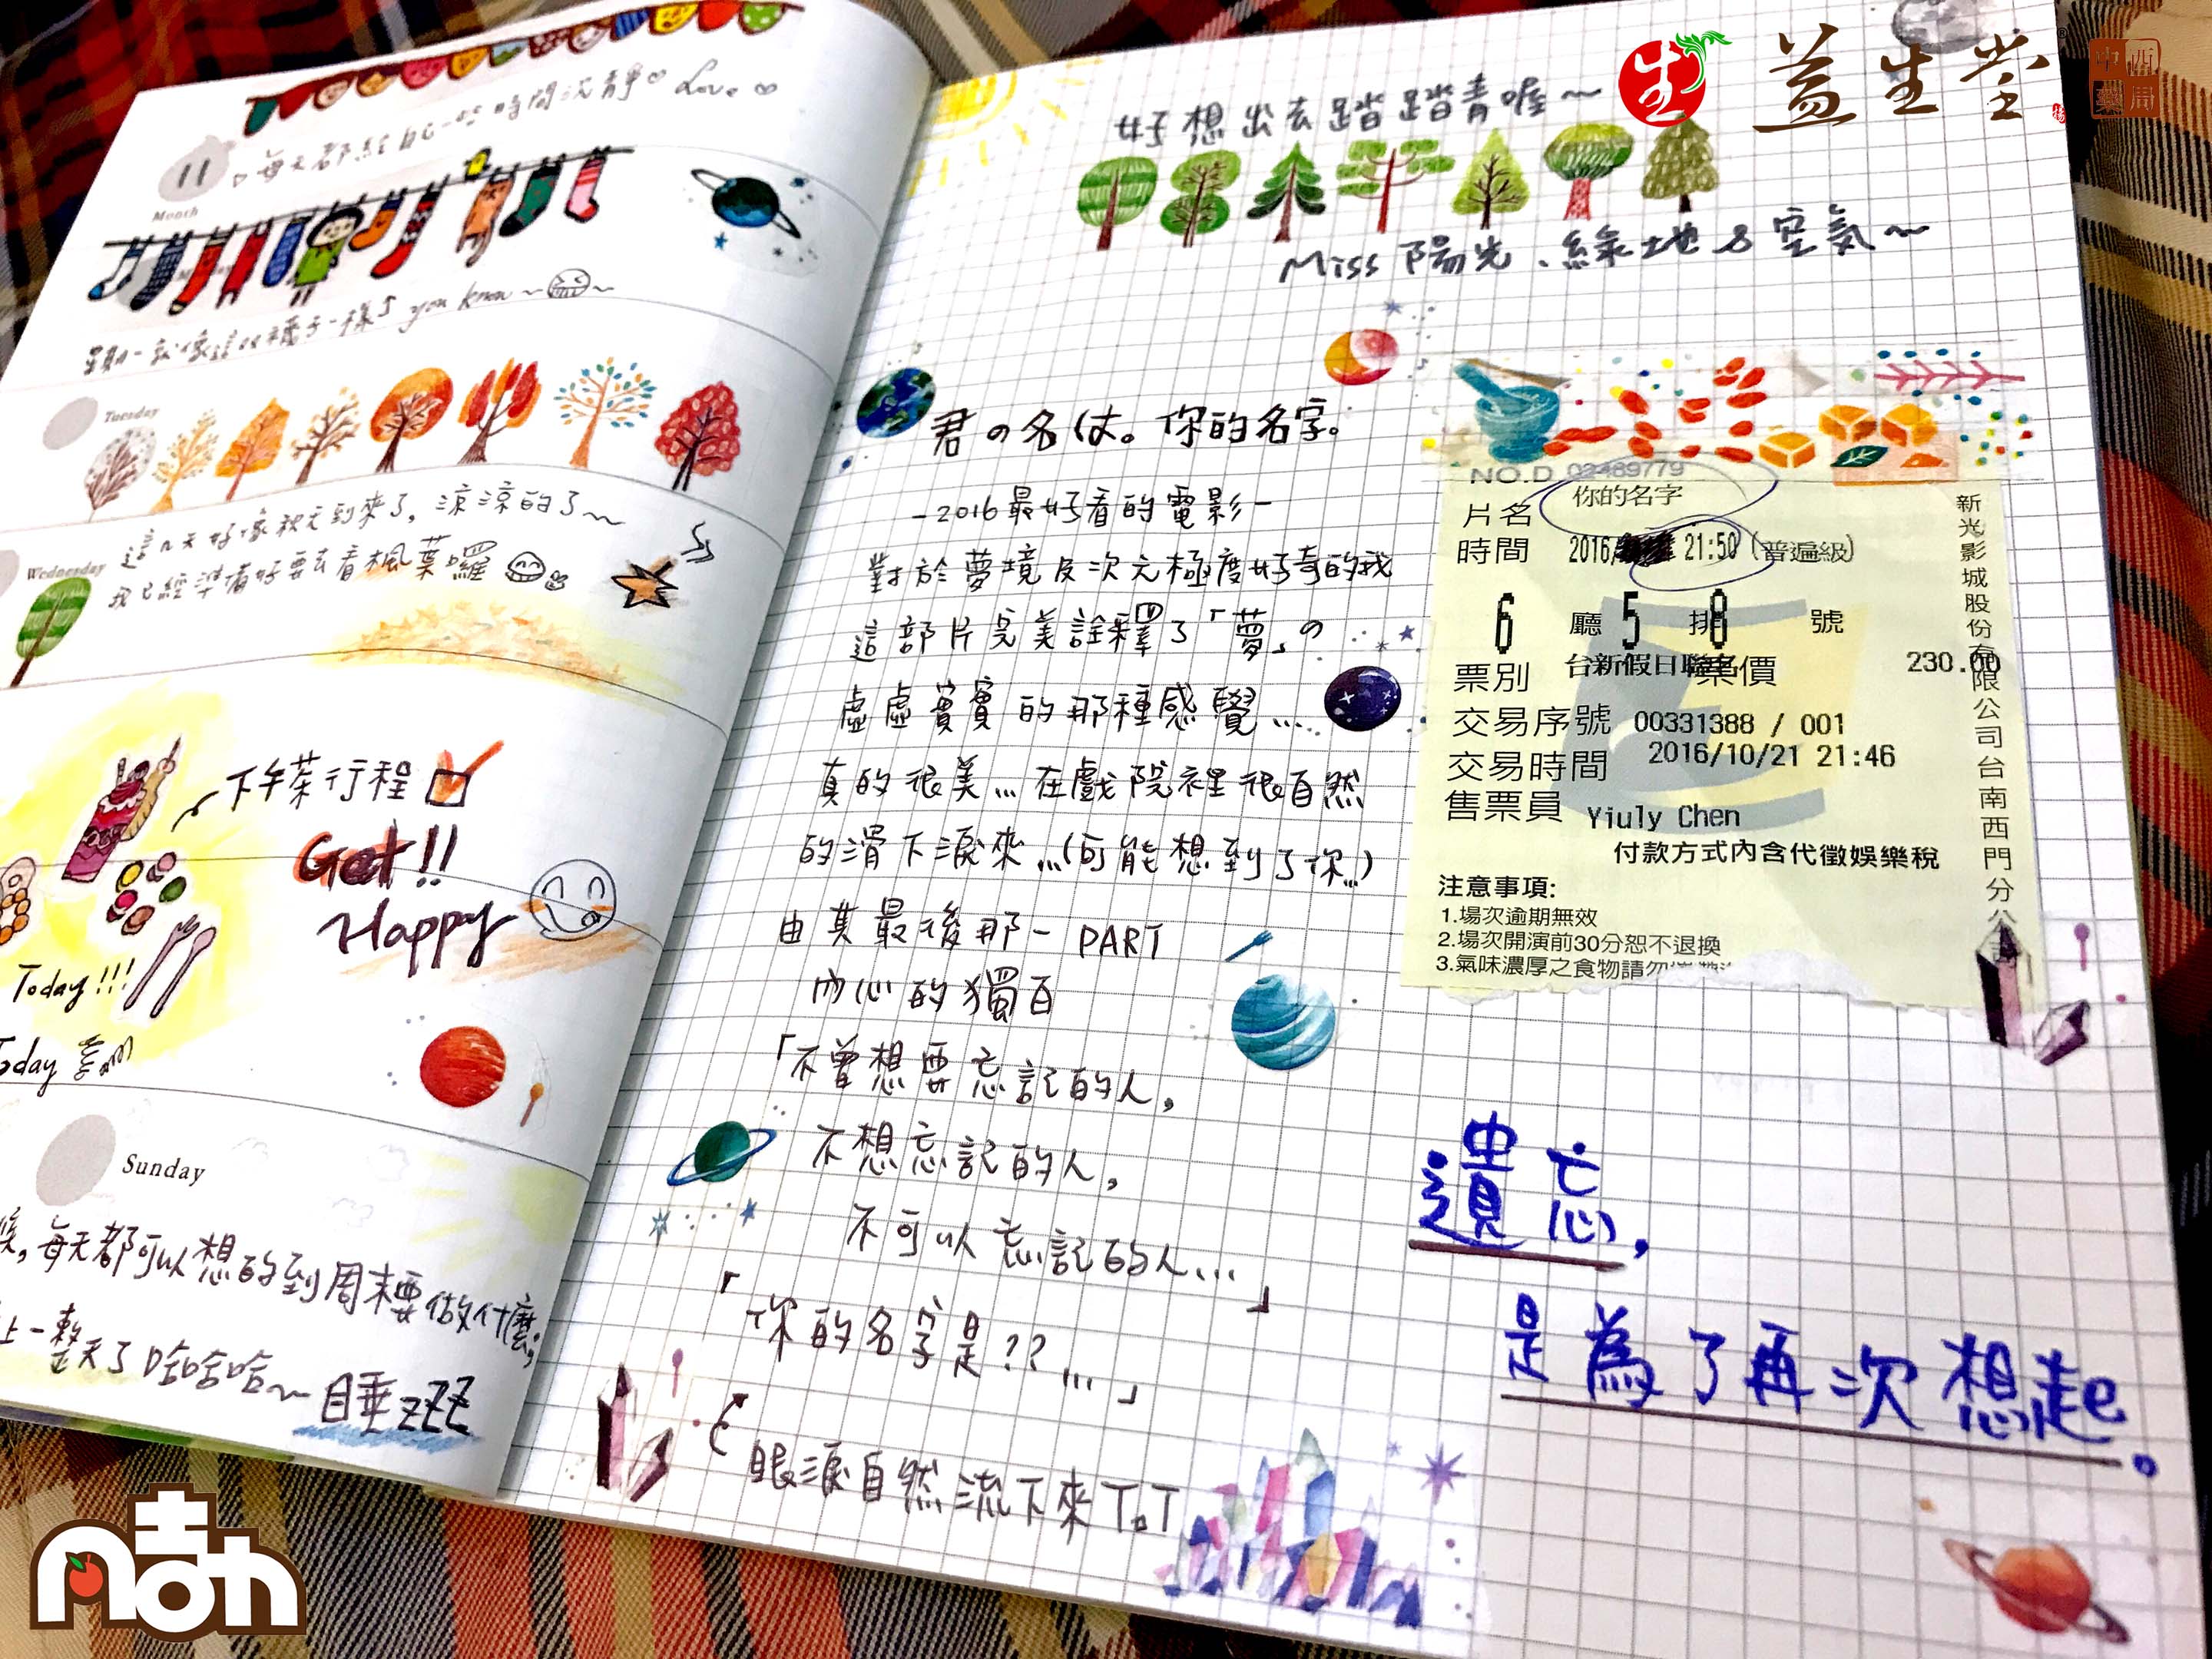 11
Month
每天都給自己一些時間沈靜 Love
星期一就像這些襪子一樣 you know~
Tuesday
這幾天好像秋天到來了，涼涼的了~
Wednesday
我已經準備好要去看楓葉囉
下午茶行程
Get!!
Happy
Today!!!
Sunday
每天都可以想的到周末要做什麼;
上一整天了哈哈哈~
睡zzZZ
好想出去踏踏青喔~
Miss 陽光、綠地&空氣~
君の名は。你的名字。
-2016最好看的電影-
對於夢境及次元極度好奇的我
這部片完美詮釋了「夢」の
虛虛實實的那種感覺...
真的很美...在戲院裡很自然
的滑下淚來...(可能想到了你...)
由其最後那一 PART
內心的獨白
「不曾想要忘記的人，
不想忘記的人，
不可以忘記的人...」
「你的名字是??...」
眼淚自然流下來 T.T
NO.D 02489779
片名 你的名字
時間 2016/ 21:50 (普遍級)
6 廳 5 排 8 號
票別 台新假日聯名 票價 230.00
交易序號 00331388 / 001
交易時間 2016/10/21 21:46
售票員 Yiuly Chen
付款方式內含代徵娛樂稅
注意事項:
1.場次逾期無效
2.場次開演前30分恕不退換
3.氣味濃厚之食物請勿
新光影城股份有限公司台南西門分公
遺忘，
是為了再次想起。
生 益生堂®
中西藥局